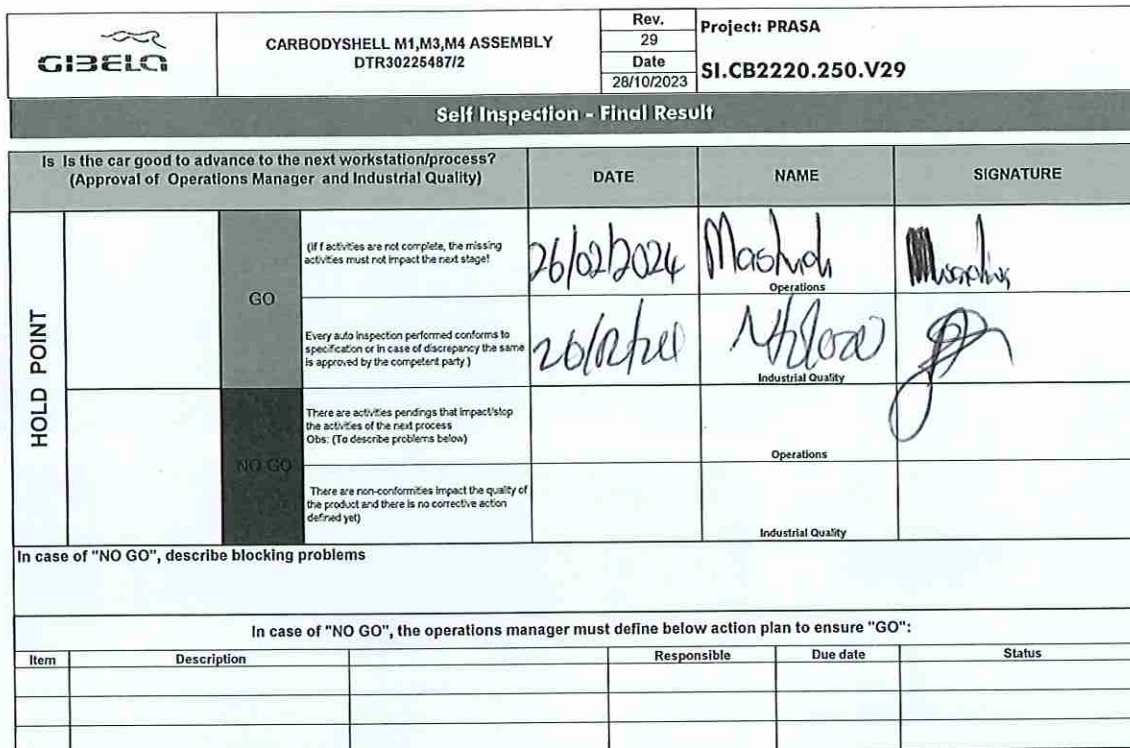 GIBELA
CARBODYSHELL M1,M3,M4 ASSEMBLY
DTR30225487/2
Rev.
29
Date
28/10/2023
Project: PRASA
SI.CB2220.250.V29
Self Inspection - Final Result
Is Is the car good to advance to the next workstation/process?
(Approval of Operations Manager and Industrial Quality)
DATE
NAME
SIGNATURE
HOLD POINT
GO
(If f activities are not complete, the missing
activities must not impact the next stage!
26/02/2024
Operations
Every auto inspection performed conforms to
specification or in case of discrepancy the same
is approved by the competent party )
Industrial Quality
NO GO
There are activities pendings that impact/stop
the activities of the next process
Obs: (To describe problems below)
Operations
There are non-conformities impact the quality of
the product and there is no corrective action
defined yet)
Industrial Quality
In case of "NO GO", describe blocking problems
In case of "NO GO", the operations manager must define below action plan to ensure "GO":
Item
Description
Responsible
Due date
Status